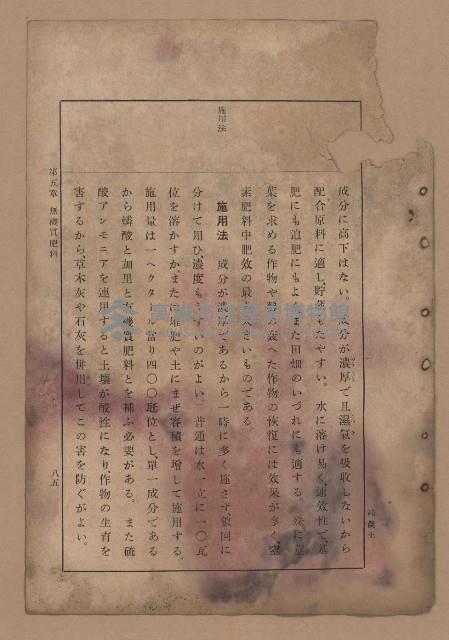 施用法
成分に高下はない。成分が濃厚で且濕氣を吸收しないから
配合原料に適し、貯藏もたやすい。水に溶け易く、速效性で、基
肥にも追肥にもよく、また田畑のいづれにも適する。殊に莖
葉を求める作物や、衰へた作物の恢復には效果が多く、窒
素肥料中肥效の最も大きいものである。
施用法 成分が濃厚であるから一時に多く施さず、數回に
分けて用ひ、濃度もいのがよい。普通は水一立に一〇瓦
位を溶かすか、または堆肥や土にまぜ容積を增して施用する。
施用量は一ヘクタール當り四〇〇瓩位とし、單一成分である
から燐酸と加里とは無機質肥料とを補ふ必要がある。また硫
酸アンモニアを連用すると土壤が酸性になり、作物の生育を
害するから、草木灰や石灰を併用してこの害を防ぐがよい。
第五章 無機質肥料
八五
高雄市立歷史博物館